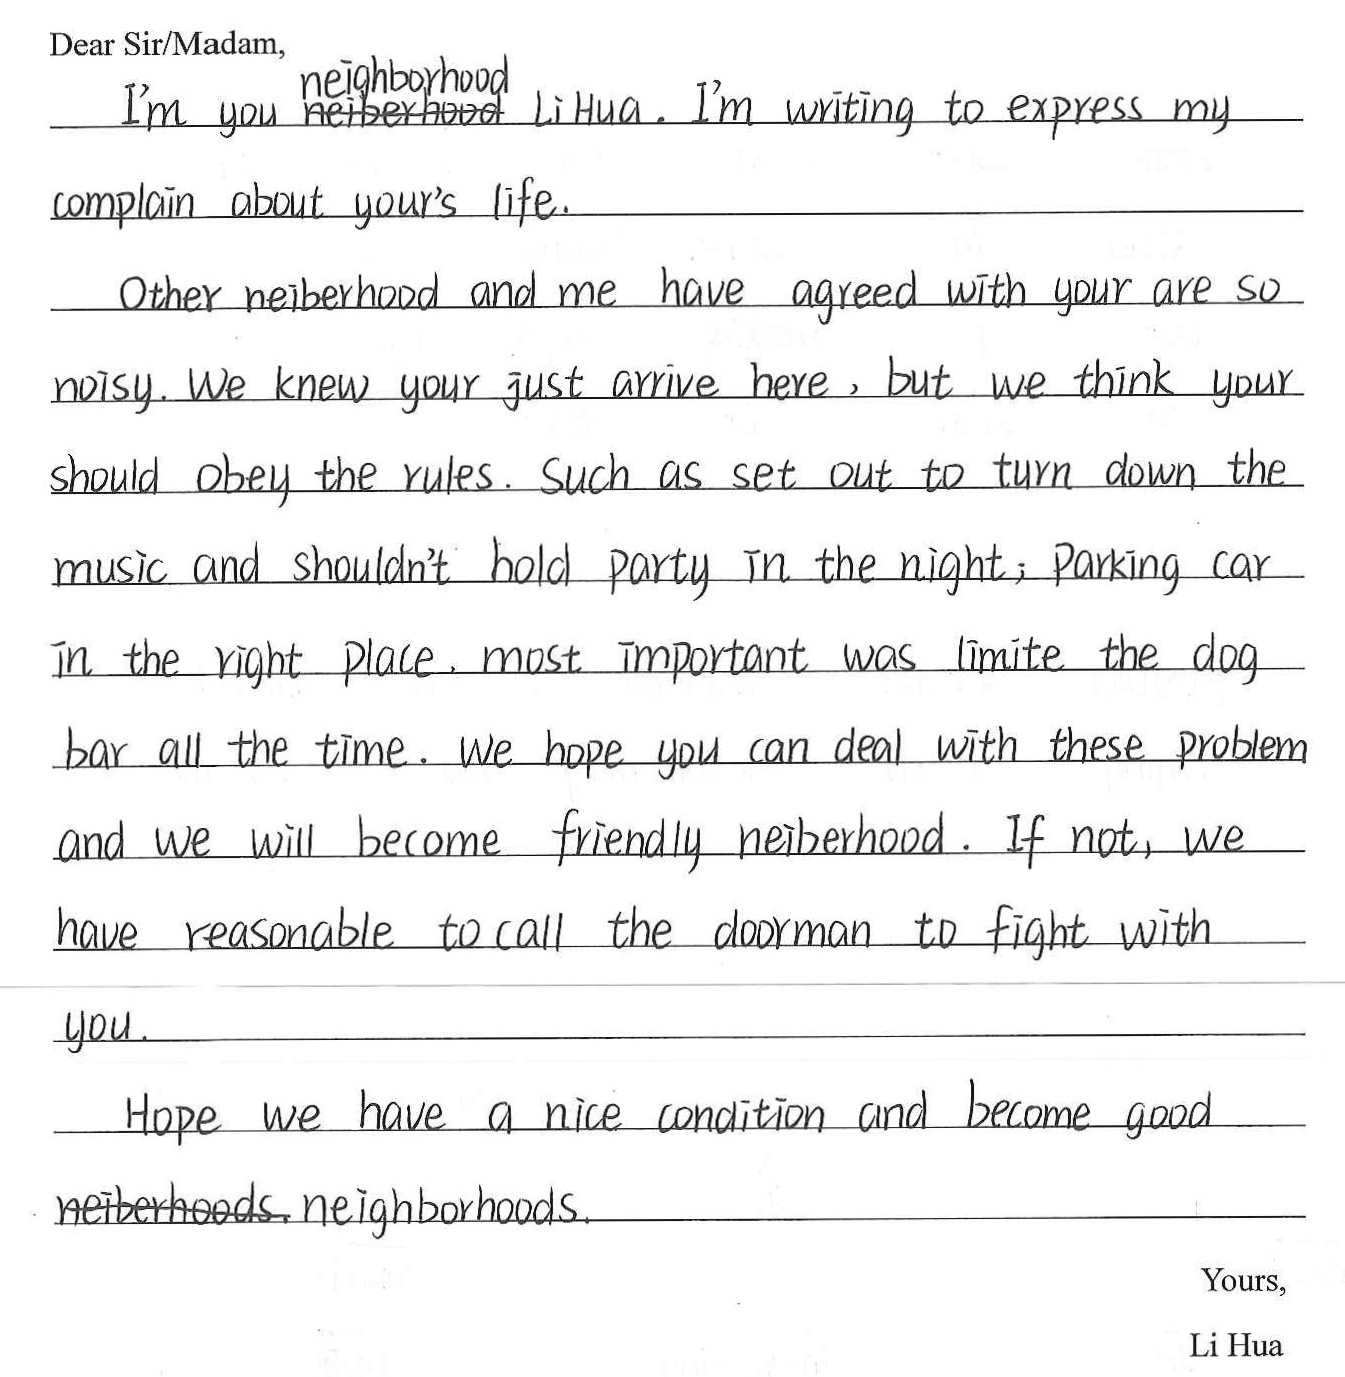 Dear Sir/Madam,
neighborhood
I'm you neiberhood Li Hua. I'm writing to express my
complain about your's life.
Other neiberhood and me have agreed with your are so
noisy. We knew your just arrive here, but we think your
should obey the rules. Such as set out to turn down the
music and shouldn't hold party in the night; Parking car
in the right place. most important was limite the dog
bar all the time. We hope you can deal with these problem
and we will become friendly neiberhood. If not, we
have reasonable to call the doorman to fight with
you.
Hope we have a nice condition and become good
neiberhoods. neighborhoods.
Yours,
Li Hua